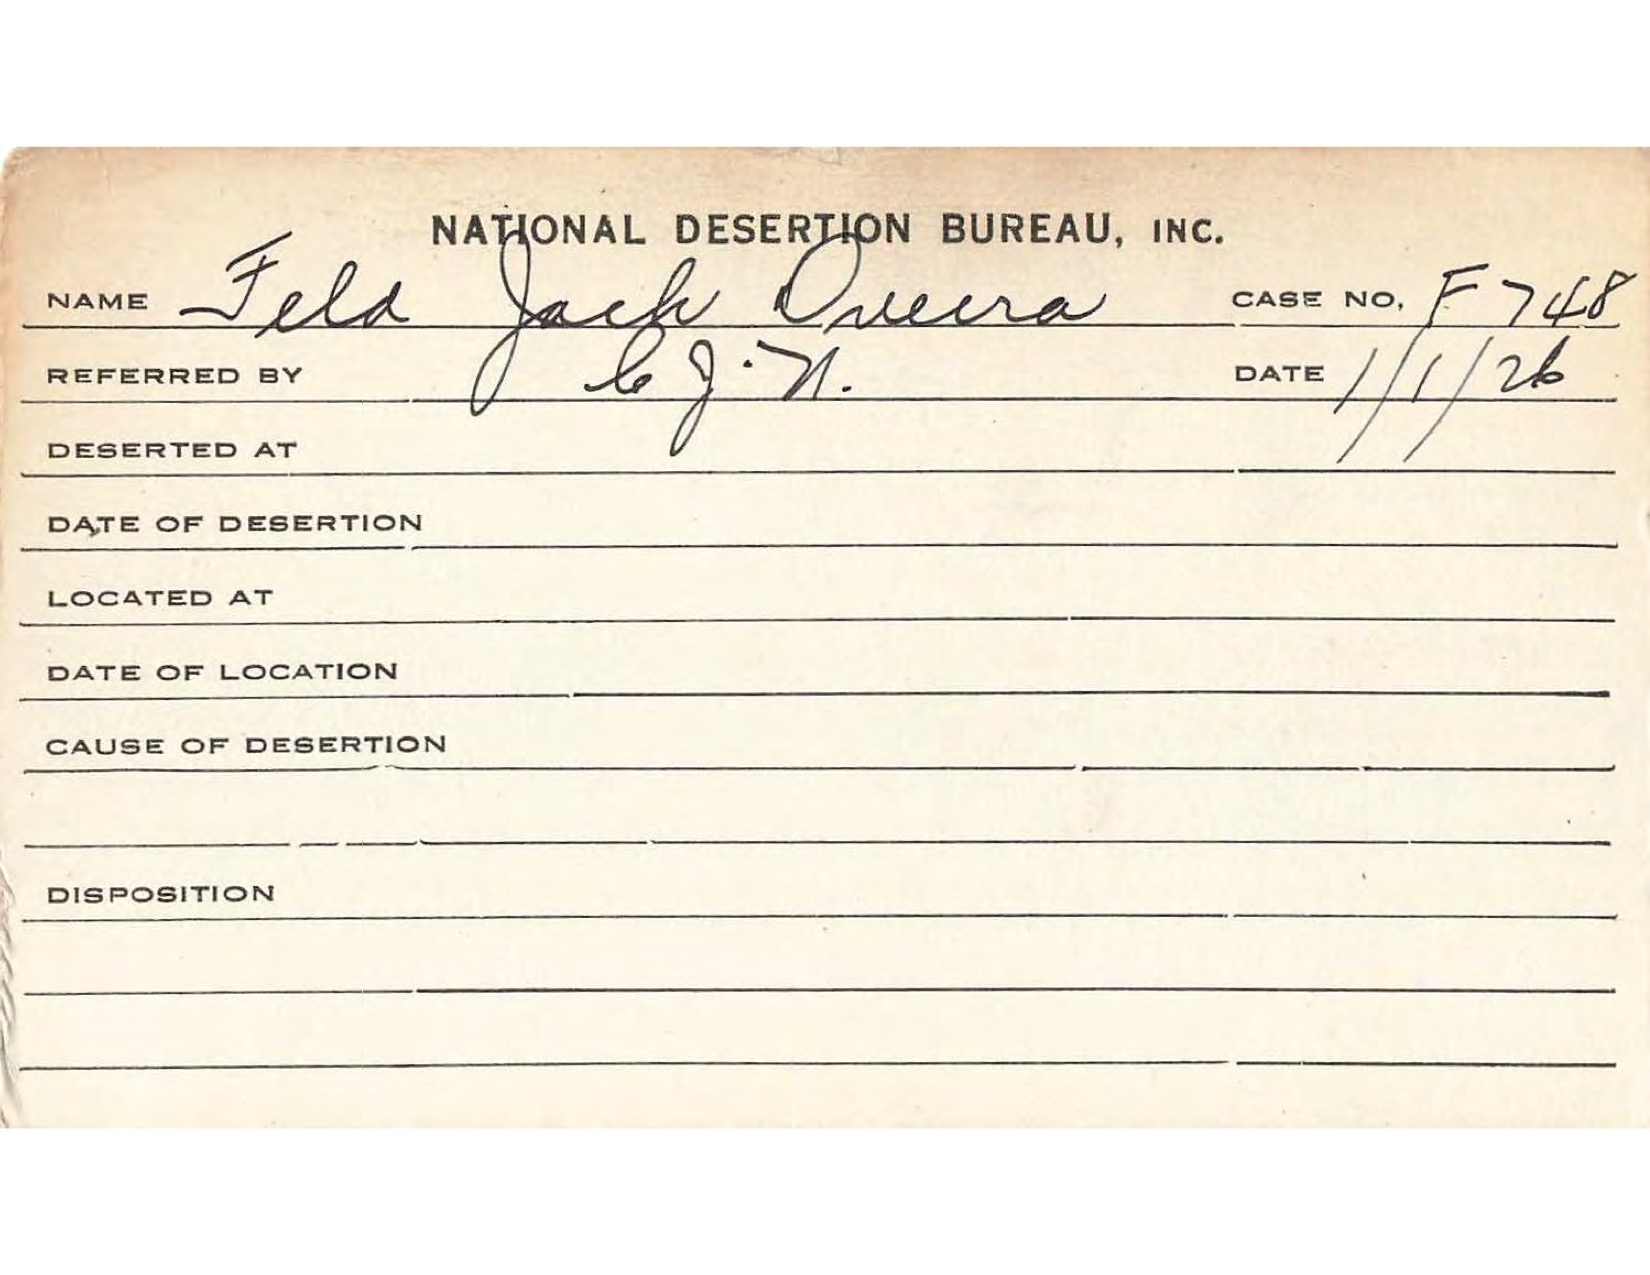 NATIONAL DESERTION BUREAU, INC.
NAME Feld Jack CASE NO. F748
REFERRED BY C.J.N. DATE 1/1/26
DESERTED AT
DATE OF DESERTION
LOCATED AT
DATE OF LOCATION
CAUSE OF DESERTION
DISPOSITION